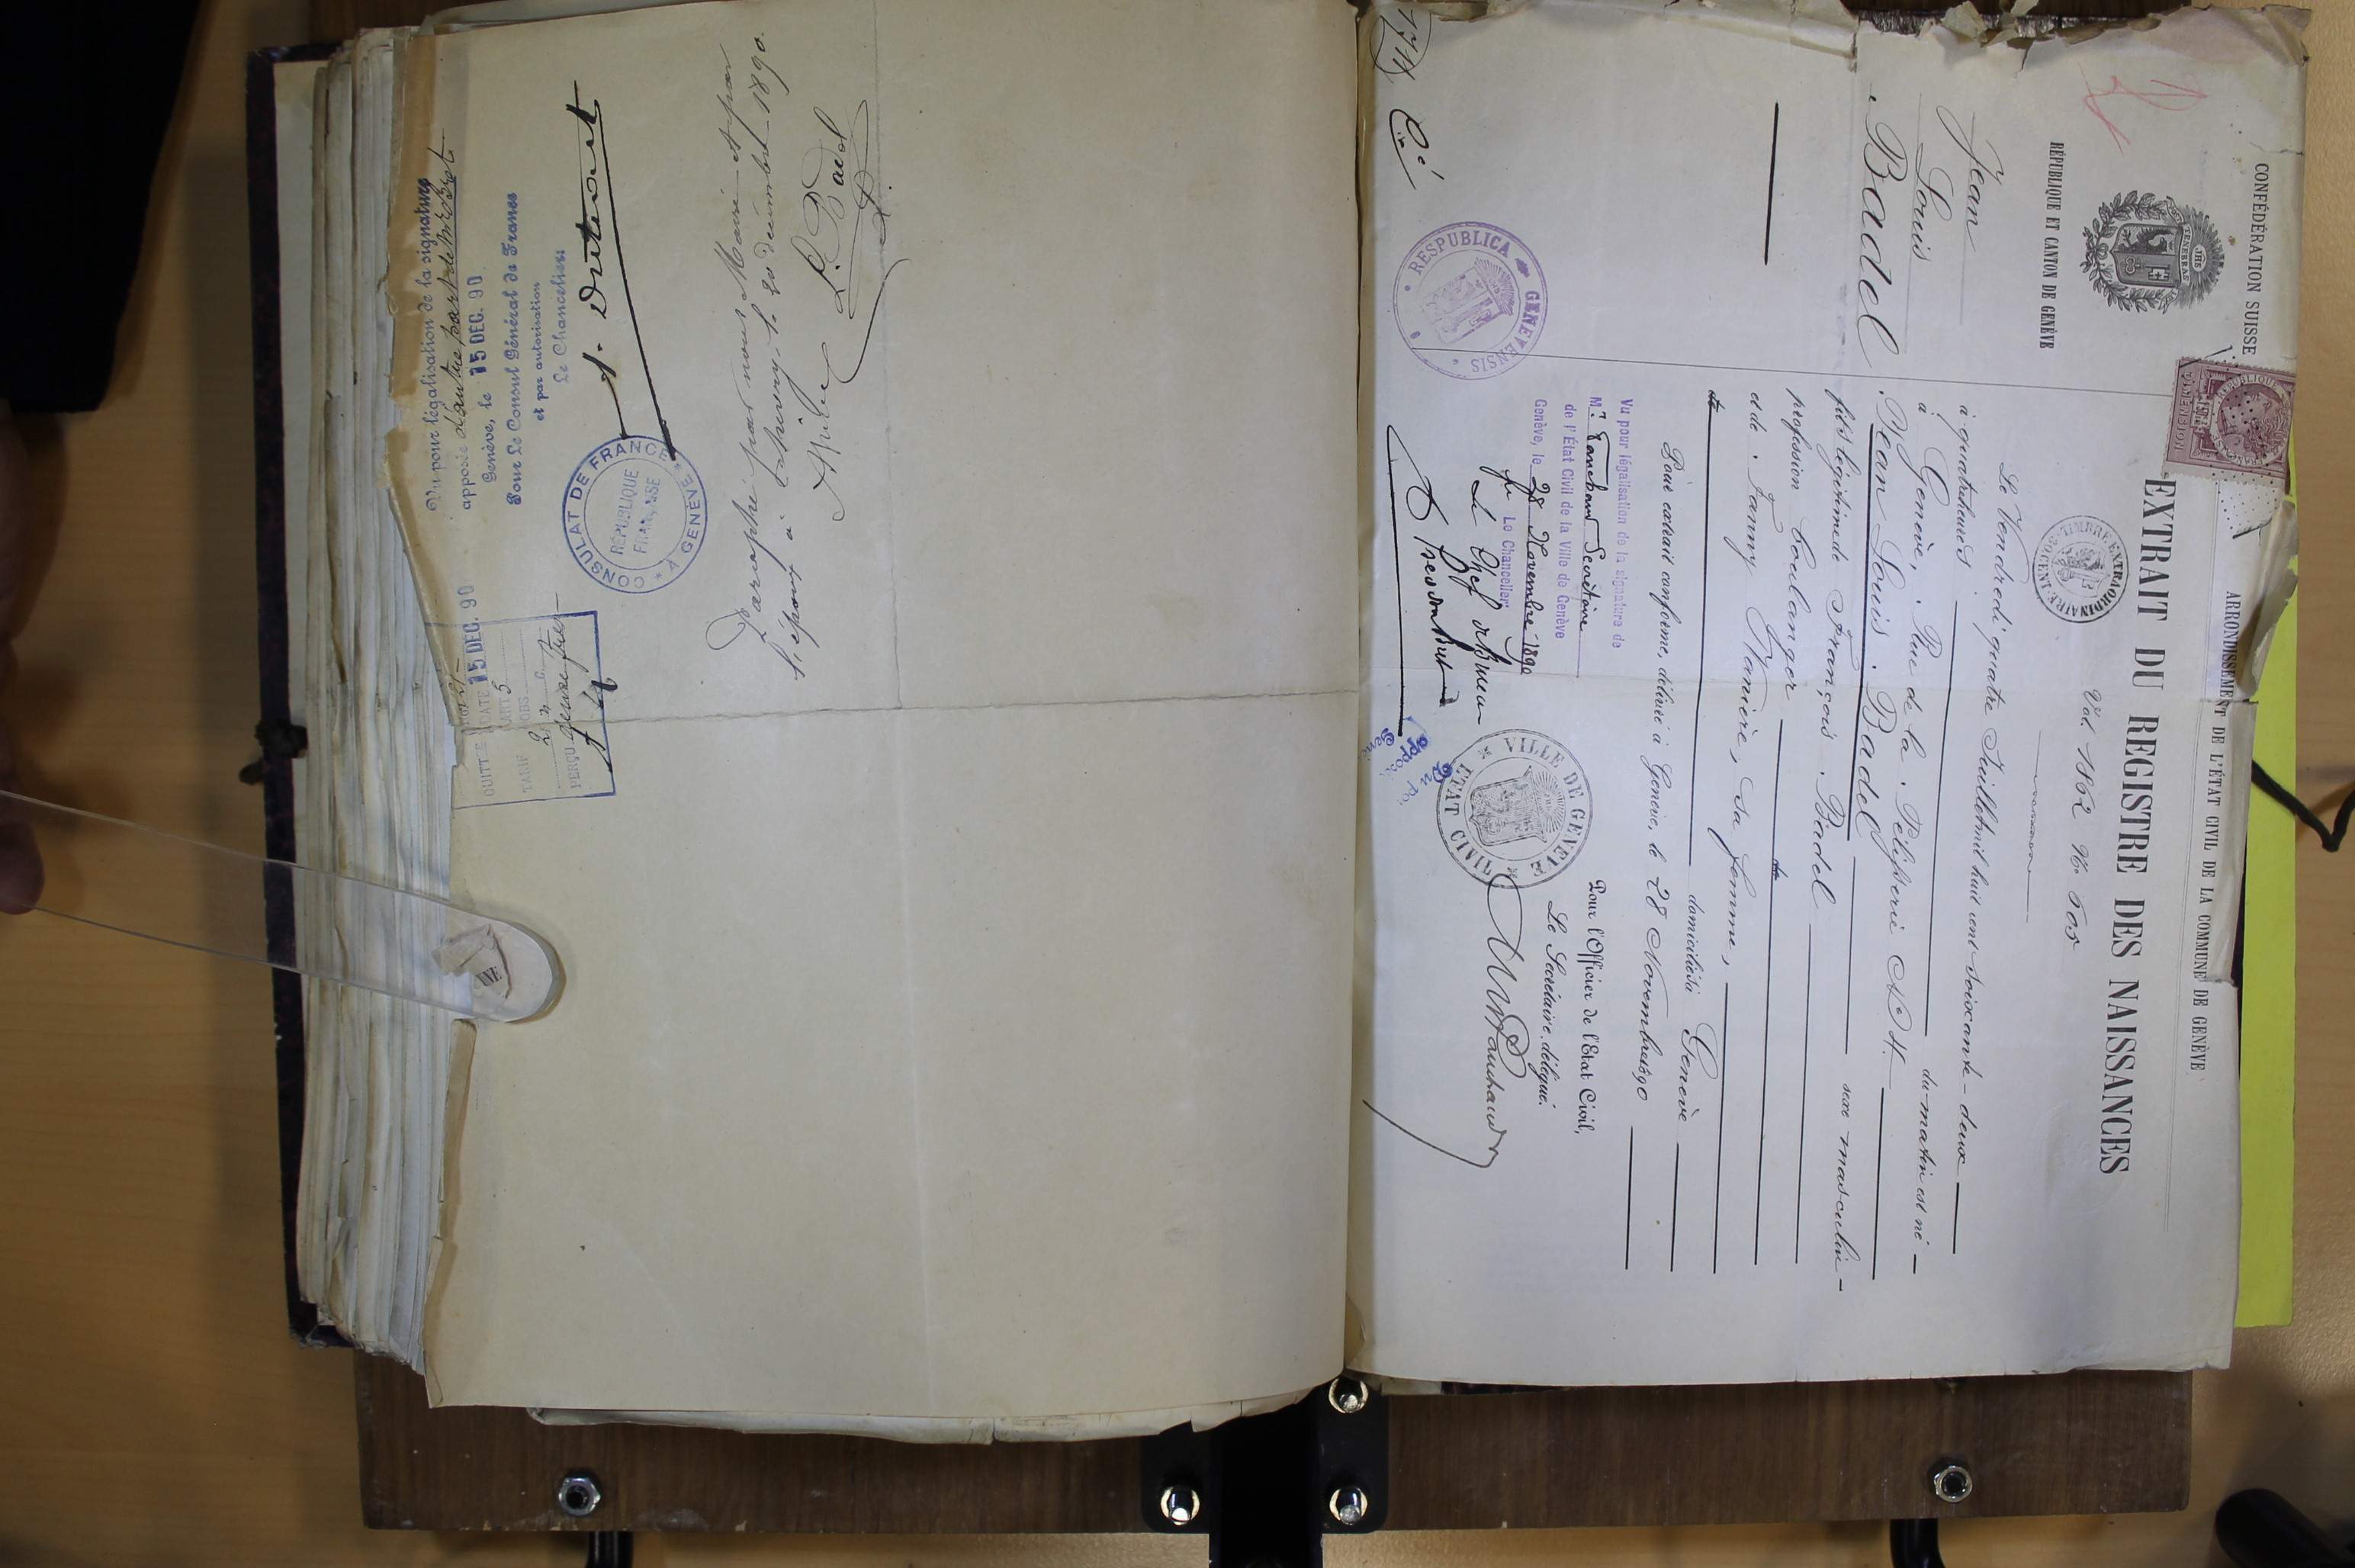 CONFÉDÉRATION SUISSE
RÉPUBLIQUE ET CANTON DE GENÈVE
Jean
Louis
Badel
ARRONDISSEMENT DE L'ÉTAT CIVIL DE LA COMMUNE DE GENÈVE
EXTRAIT DU REGISTRE DES NAISSANCES
Vol 1862 No 605
TIMBRE EXTRAORDINAIRE
Le Vendredi quatre Juillet mil huit cent soixante-deux
à quatre heures du matin est né
à Genève, Rue de la Pélisserie No 4.
Jean Louis Badel sexe masculin
fils légitime de François Badel
profession boulanger de
et de Fanny Nanière, sa femme,
de domiciliés à Genève
Pour extrait conforme, délivré à Genève, le 28 Novembre 1890
Pour l'Officier de l'Etat Civil,
Le Secrétaire délégué.
VILLE DE GENÈVE
ETAT CIVIL
Vu pour légalisation de la signature de
Mr. Fauchaud Secrétaire
de l'État Civil de la Ville de Genève
Genève, le 28 Novembre 1890
Le Chancelier:
Le Chef de Bureau
RESPUBLICA GENEVENSIS
Vu pour légalisation de la signature
apposée d'autre part de Mr
Genève, le 15 DEC. 90
Pour Le Consul Général de France
et par autorisation
Le Chancelier:
CONSULAT DE FRANCE
A GENÈVE
RÉPUBLIQUE
FRANÇAISE
QUITTE
DATE 15 DEC. 90
ART 5
TARIF
OBS.
PERÇU
Paraphé par nous Maire et par
l'époux à
décembre 1890.
L. Badel